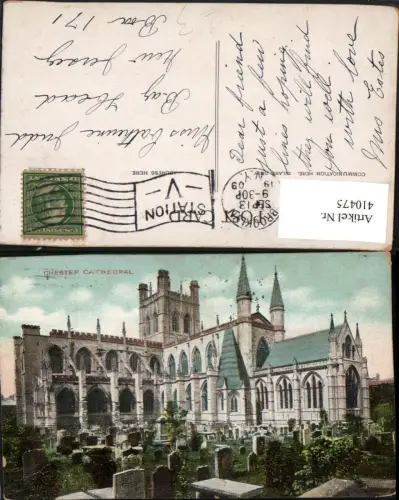 Dear friend
Just a few
lines hoping
they will find
you well
with love
Mrs Estes
COMMUNICATION HERE.
ADDRESS HERE
Miss Catherine
Bay Head
New Jersey
Box 171
3RD
STATION
V
SEP 13
9-30P
09
Artikel Nr.
410475
CHESTER CATHEDRAL